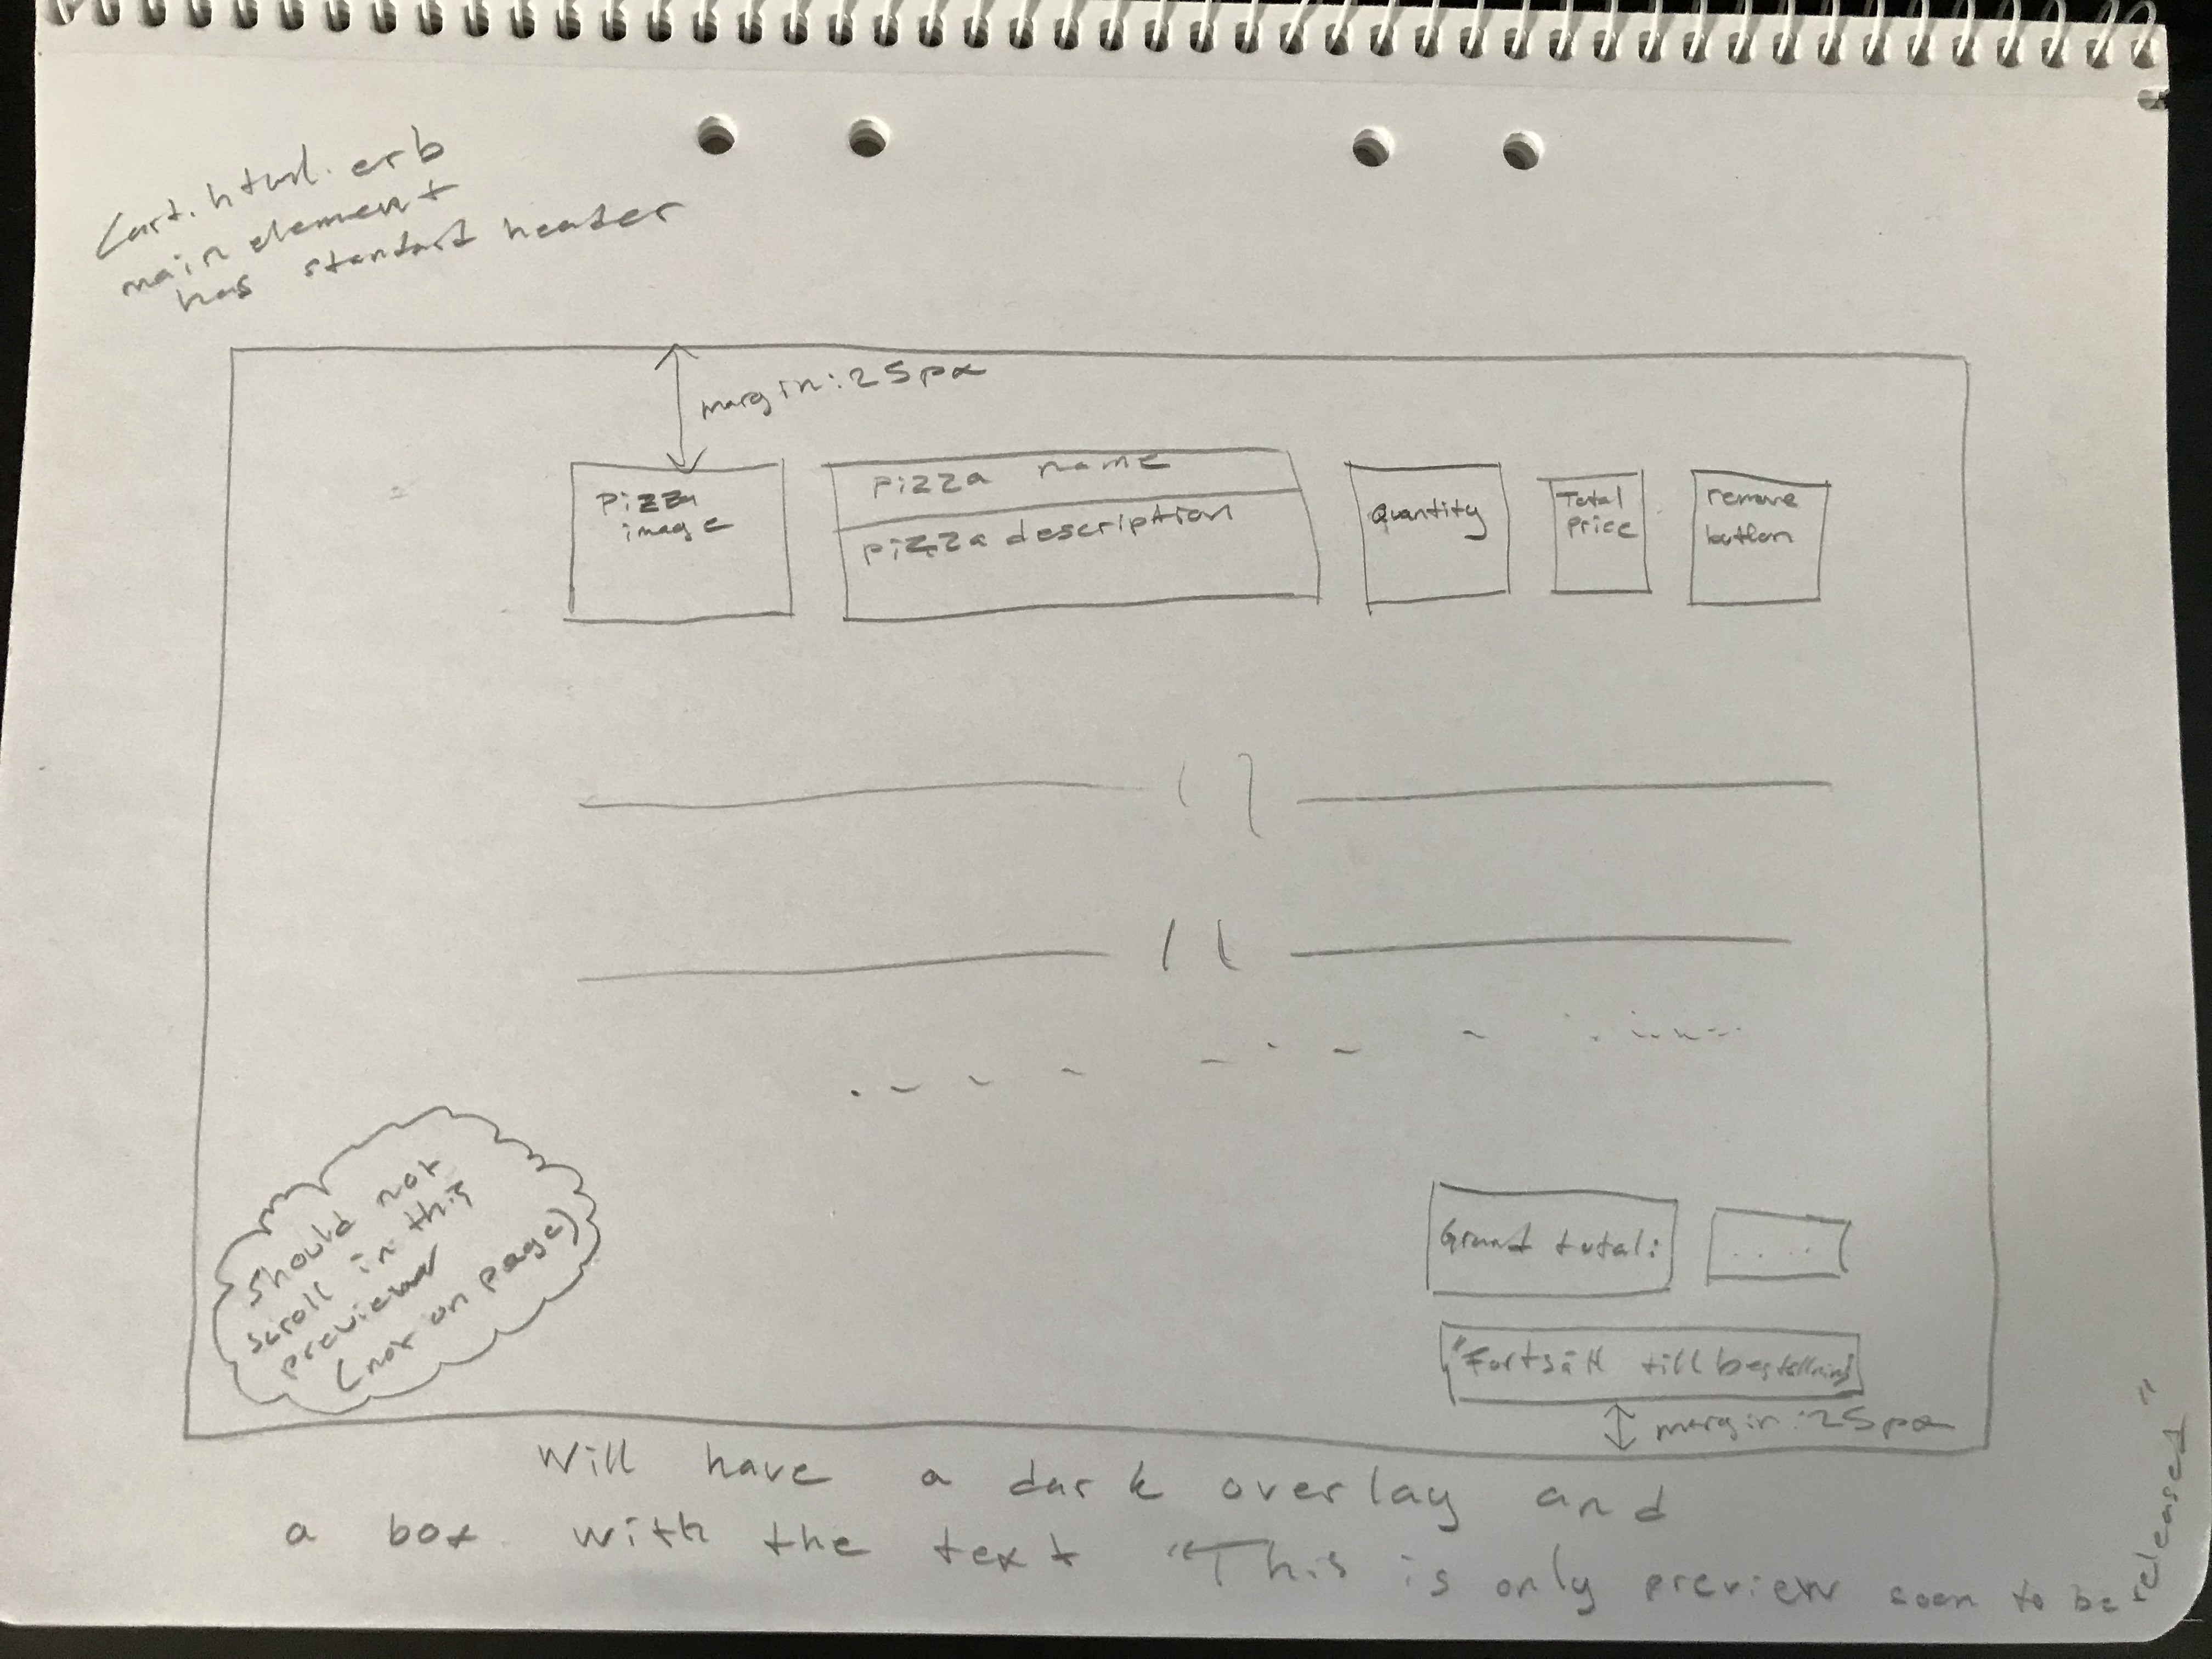 Cart.html.erb
main element
has standard header
margin:25px
Pizza
image
Pizza name
Pizza description
Quantity
Total
price
remove
button
Should not
scroll in this
preview
(not on page)
Grand total:
.....
"Fortsätt till beställning"
margin:25px
Will have a dark overlay and
a box with the text "This is only preview soon to be released"